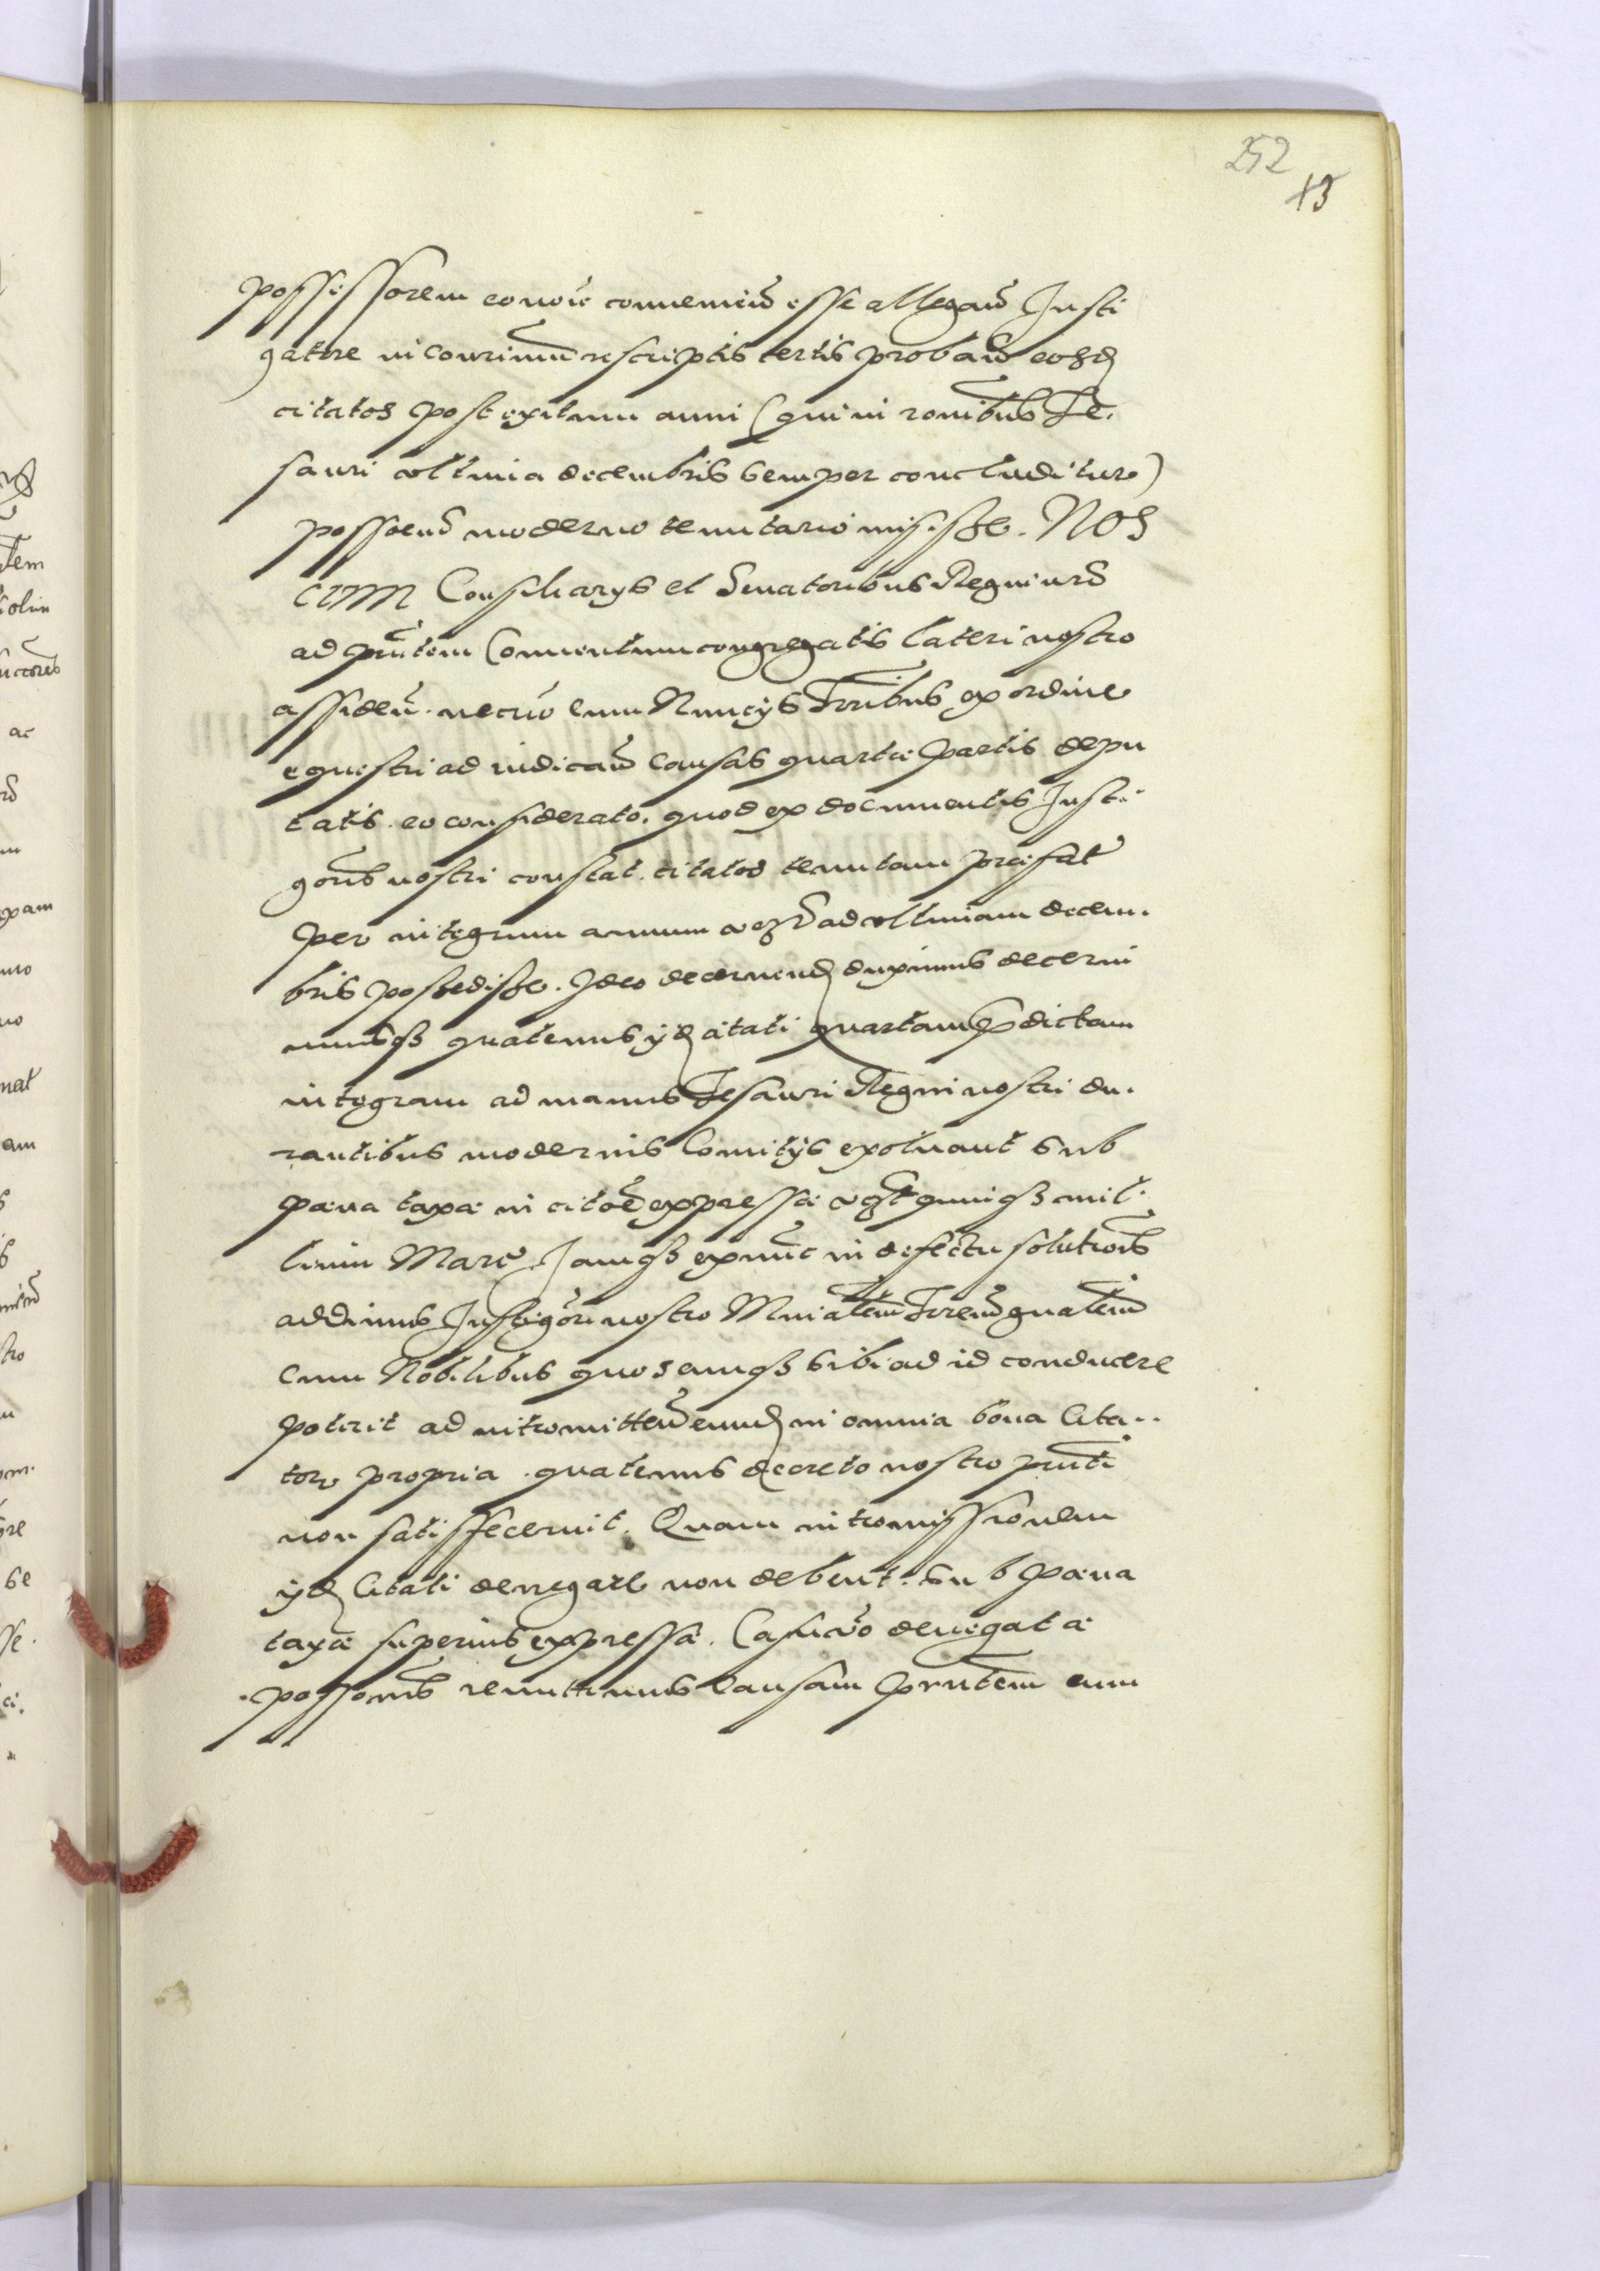 252
13
possessorem eo noīe conueniēd esse allegañ Insti
gatore in contrariūm rescriptis certis probañ eosđ
citatos post exitum anni (qui in rōnibus The-
sauri vltima decembris semper concluditur)
possoēm moderno tenutario misisse. NOS
CVM Consiliarys et Senatoribus Regni nrō
ad prñtem Conuentum congregatis lateri nostro
assideñ. necnō cum Nuncys Trrībus ex ordine
equestri ad iudicañ causas quartæ Partis depu
tatis. eo considerato. quod ex documentis Insti-
gōris nostri constat. citatos tenutam præfat
per integrum annum vsq ad vltimam decem-
bris possedisse. Ideo decernenđ duximus decerni
musq quatenus ydđ citati quartam prædictam
integram ad manus Thesauri Regni nostri du-
rantibus modernis Comitys exoluant sub
pæna taxæ in citōne expressæ vꝫt quinq mil-
lium Marc̄ Iamq exnūc in defectu solutiōis
addimus Instigōri nostro Mniālem Trrēm quatenus
cum Nobilibus quos cunq sibi ad id conducere
poterit ad intromitteñ eunđ in omnia bona Cita-
tor propria. quatenus decreto nostro prñti
non satisfecerint. Quam intromissionem
ydđ Citati denegare non debent. sub pæna
taxæ superius expressæ. Casu vo denegatæ
possonis remittimus Causam prñtem cum